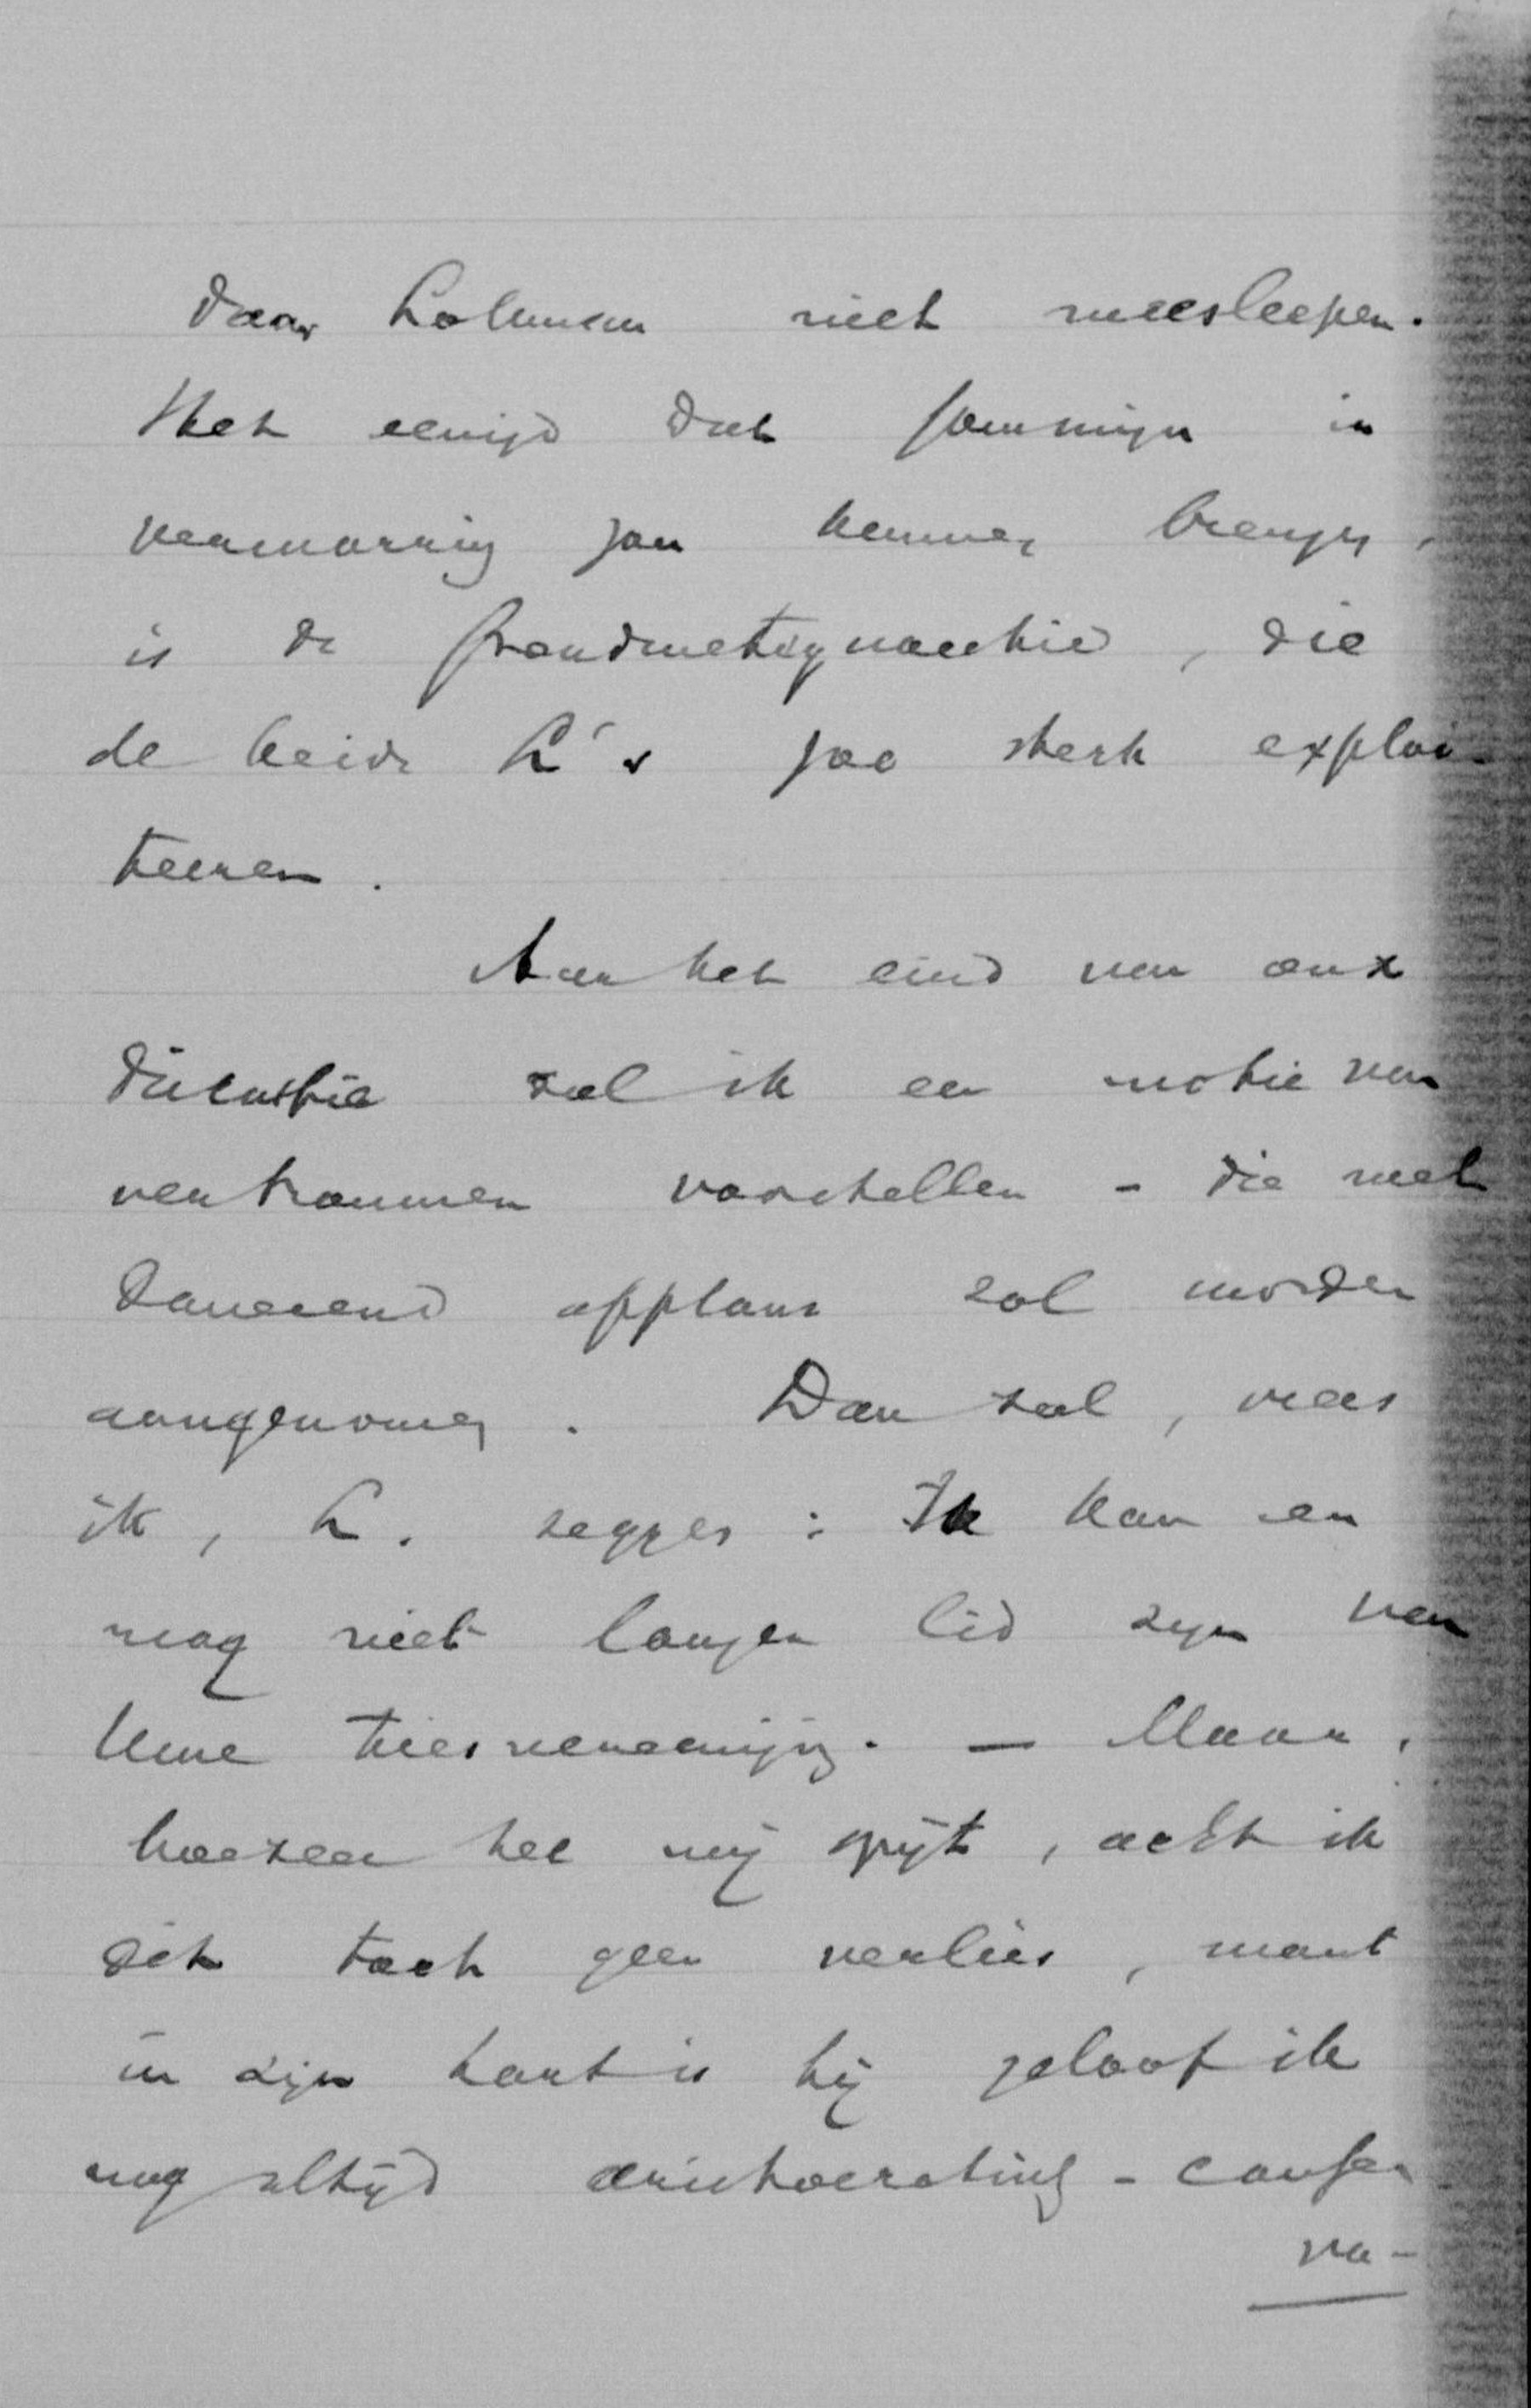 door Lohman niet meesleepen.
Het eenige dat sommigen in
verwarring zou kunnen brengen,
is de grondwetsquaestie, die
de beide L's zoo sterk exploi-
teeren.
Aan het eind van onze
discussie zal ik een motie van
vertrouwen voorstellen - die met
daverend applaus zal worden
aangenomen. Dan zal, vrees
ik, L. zeggen: Ik kan en
mag niet langer lid zijn van
Uwe kiesvereeniging. — Maar,
hoezeer het mij spijt, acht ik
dit toch geen verlies, want
in zijn hart is hij geloof ik
nog altijd aristocratisch-conser
va-